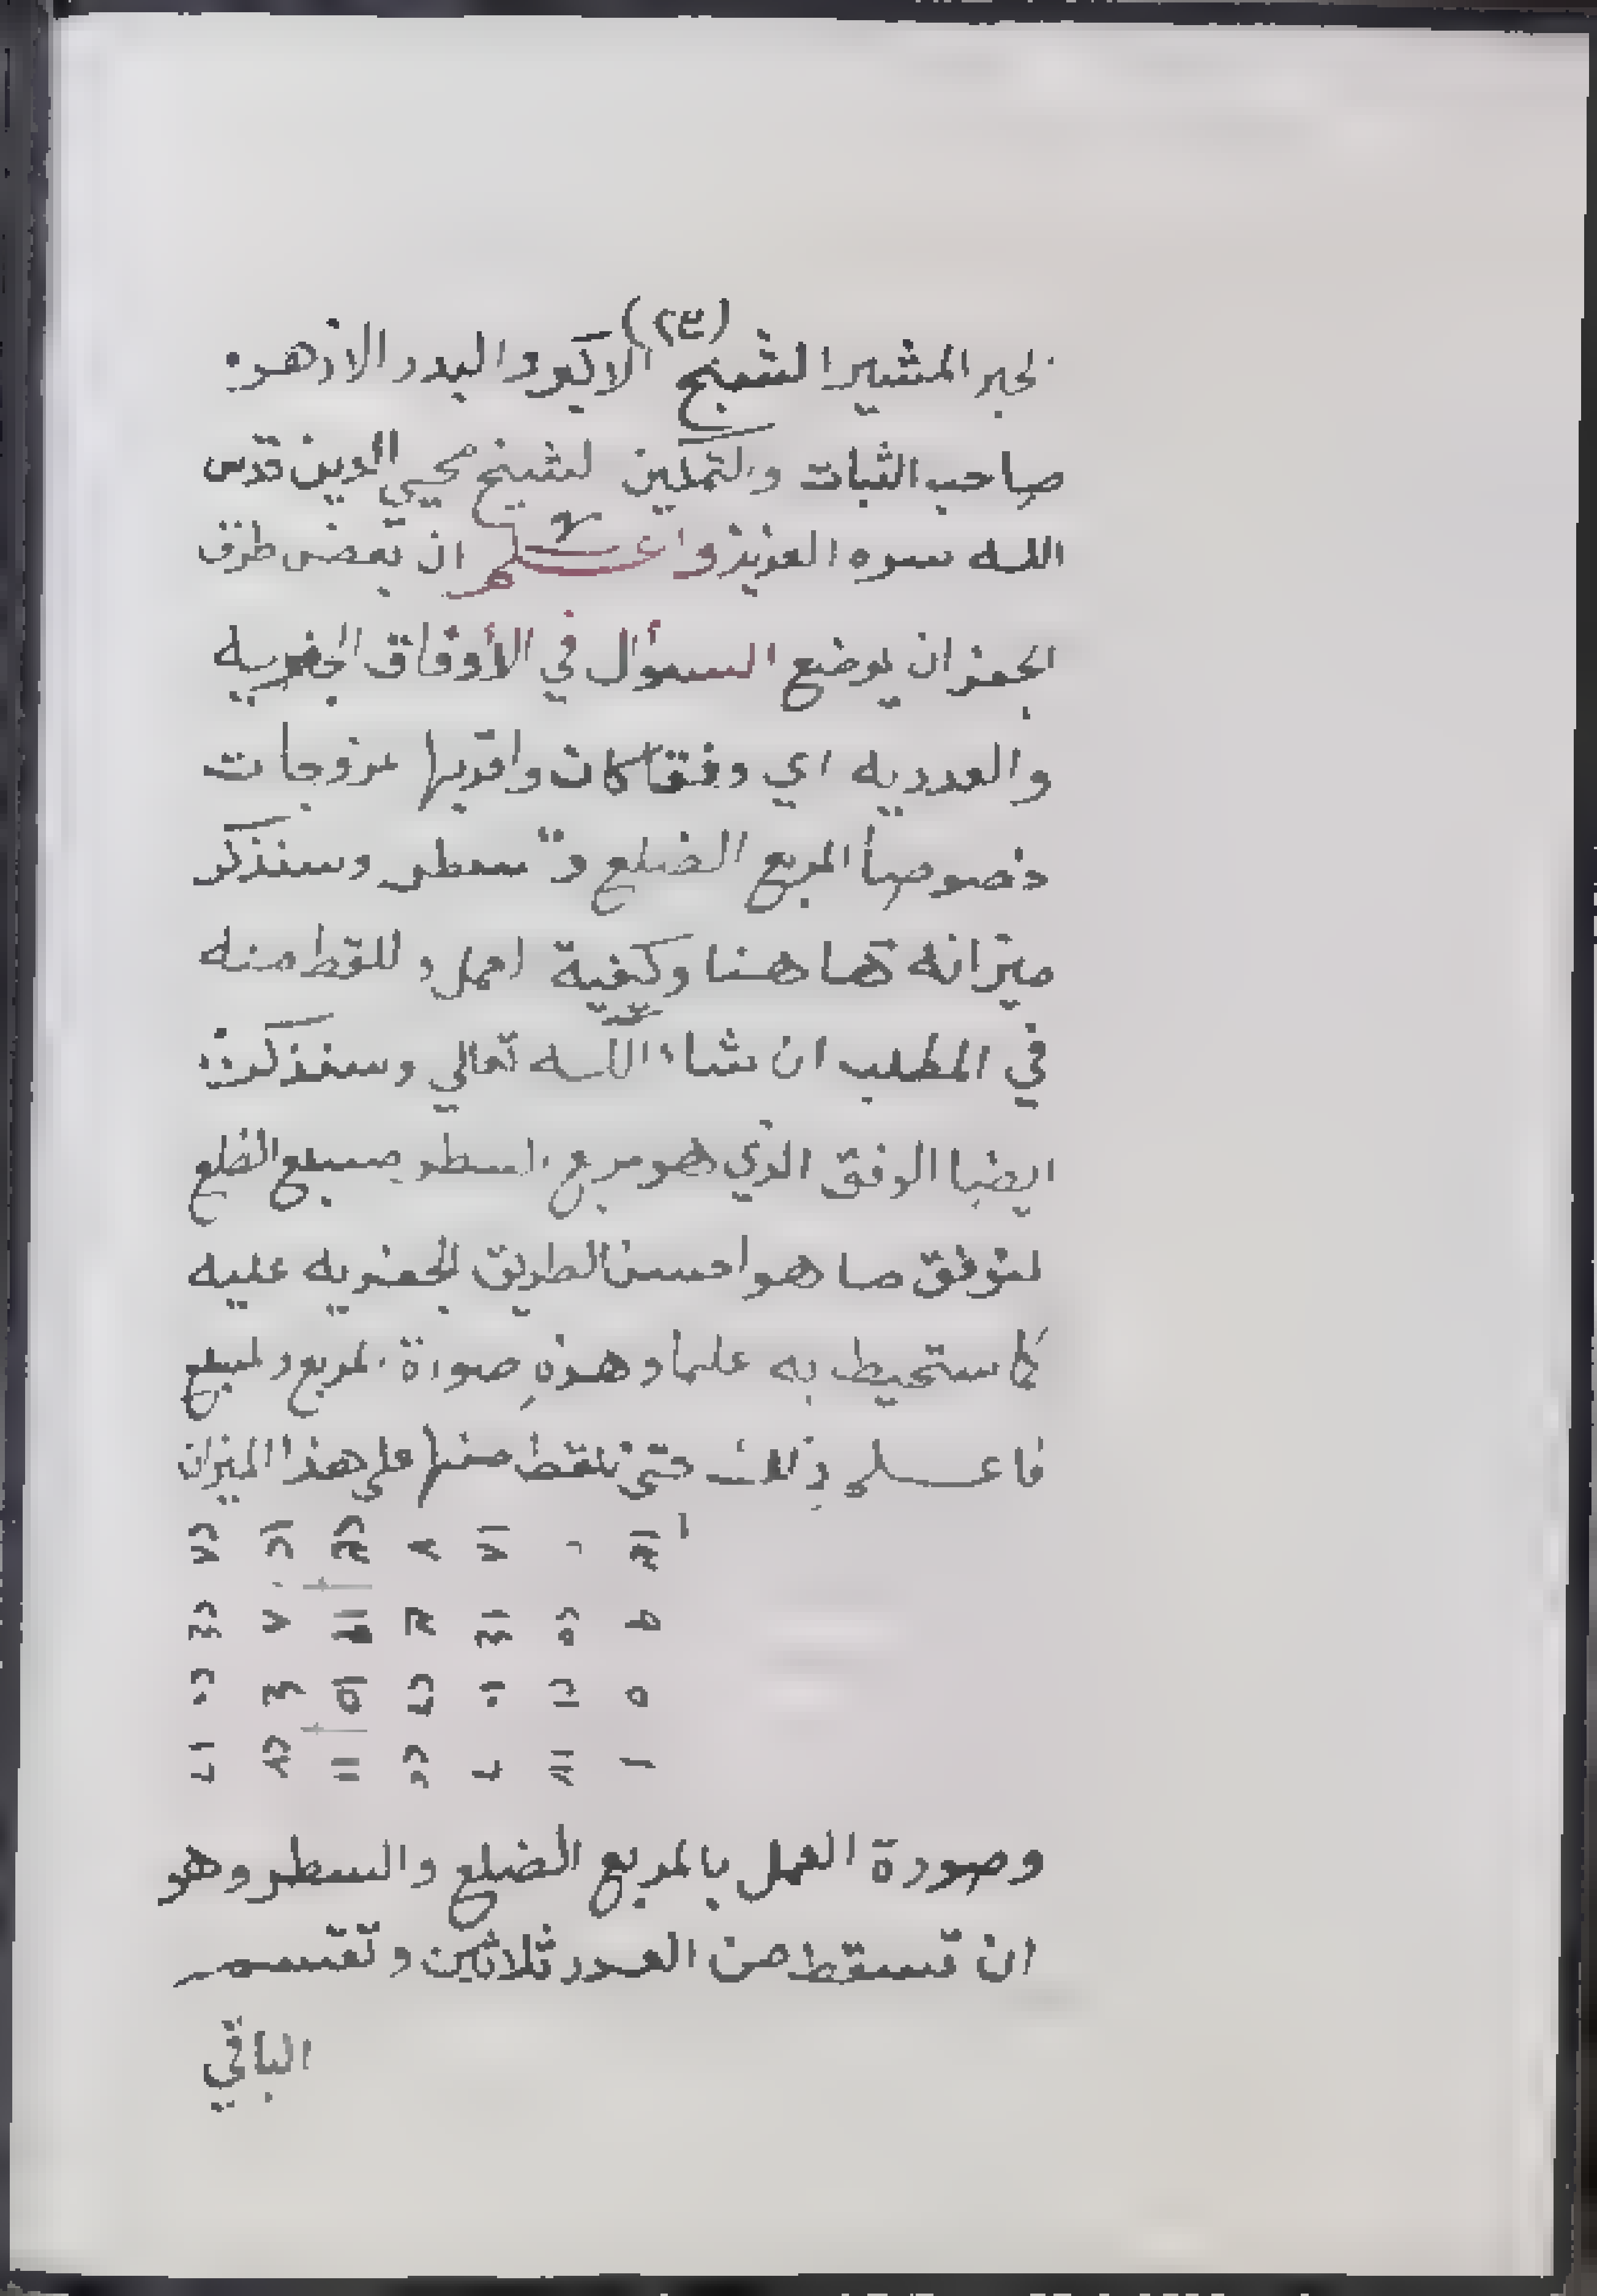 (٢٤)
الحبر المشير الشيخ الاكبر والبدر الازهر
صاحب الثبات والتمكين الشيخ محيي الدين قدس
الله سره العزيز واعلم ان بعض طرق
الجفر ان يوضع السؤال في الأوفاق الجفريه
والعدديه اي وفقا كان واقربها مزوجات
خصوصا المربع الضلع و سطر وسنذكر
ميزانه هاهنا وكيفية العمل واللقط منه
في المطلب ان شاء الله تعالي وسنذكر
ايضا الوفق الذي هو مربع السطر مسبع الضلع
لتوفق ما هو احسن الطريق الجفريه عليه
كما ستحيط به علما وهذه صورة المربع والمسبع
فاعلم ذلك حتى تلقط منها على هذا الميزان
وصورة العمل بالمربع الضلع والسطر وهو
ان تسقط من العدد ثلاثين وتقسم
الباقي